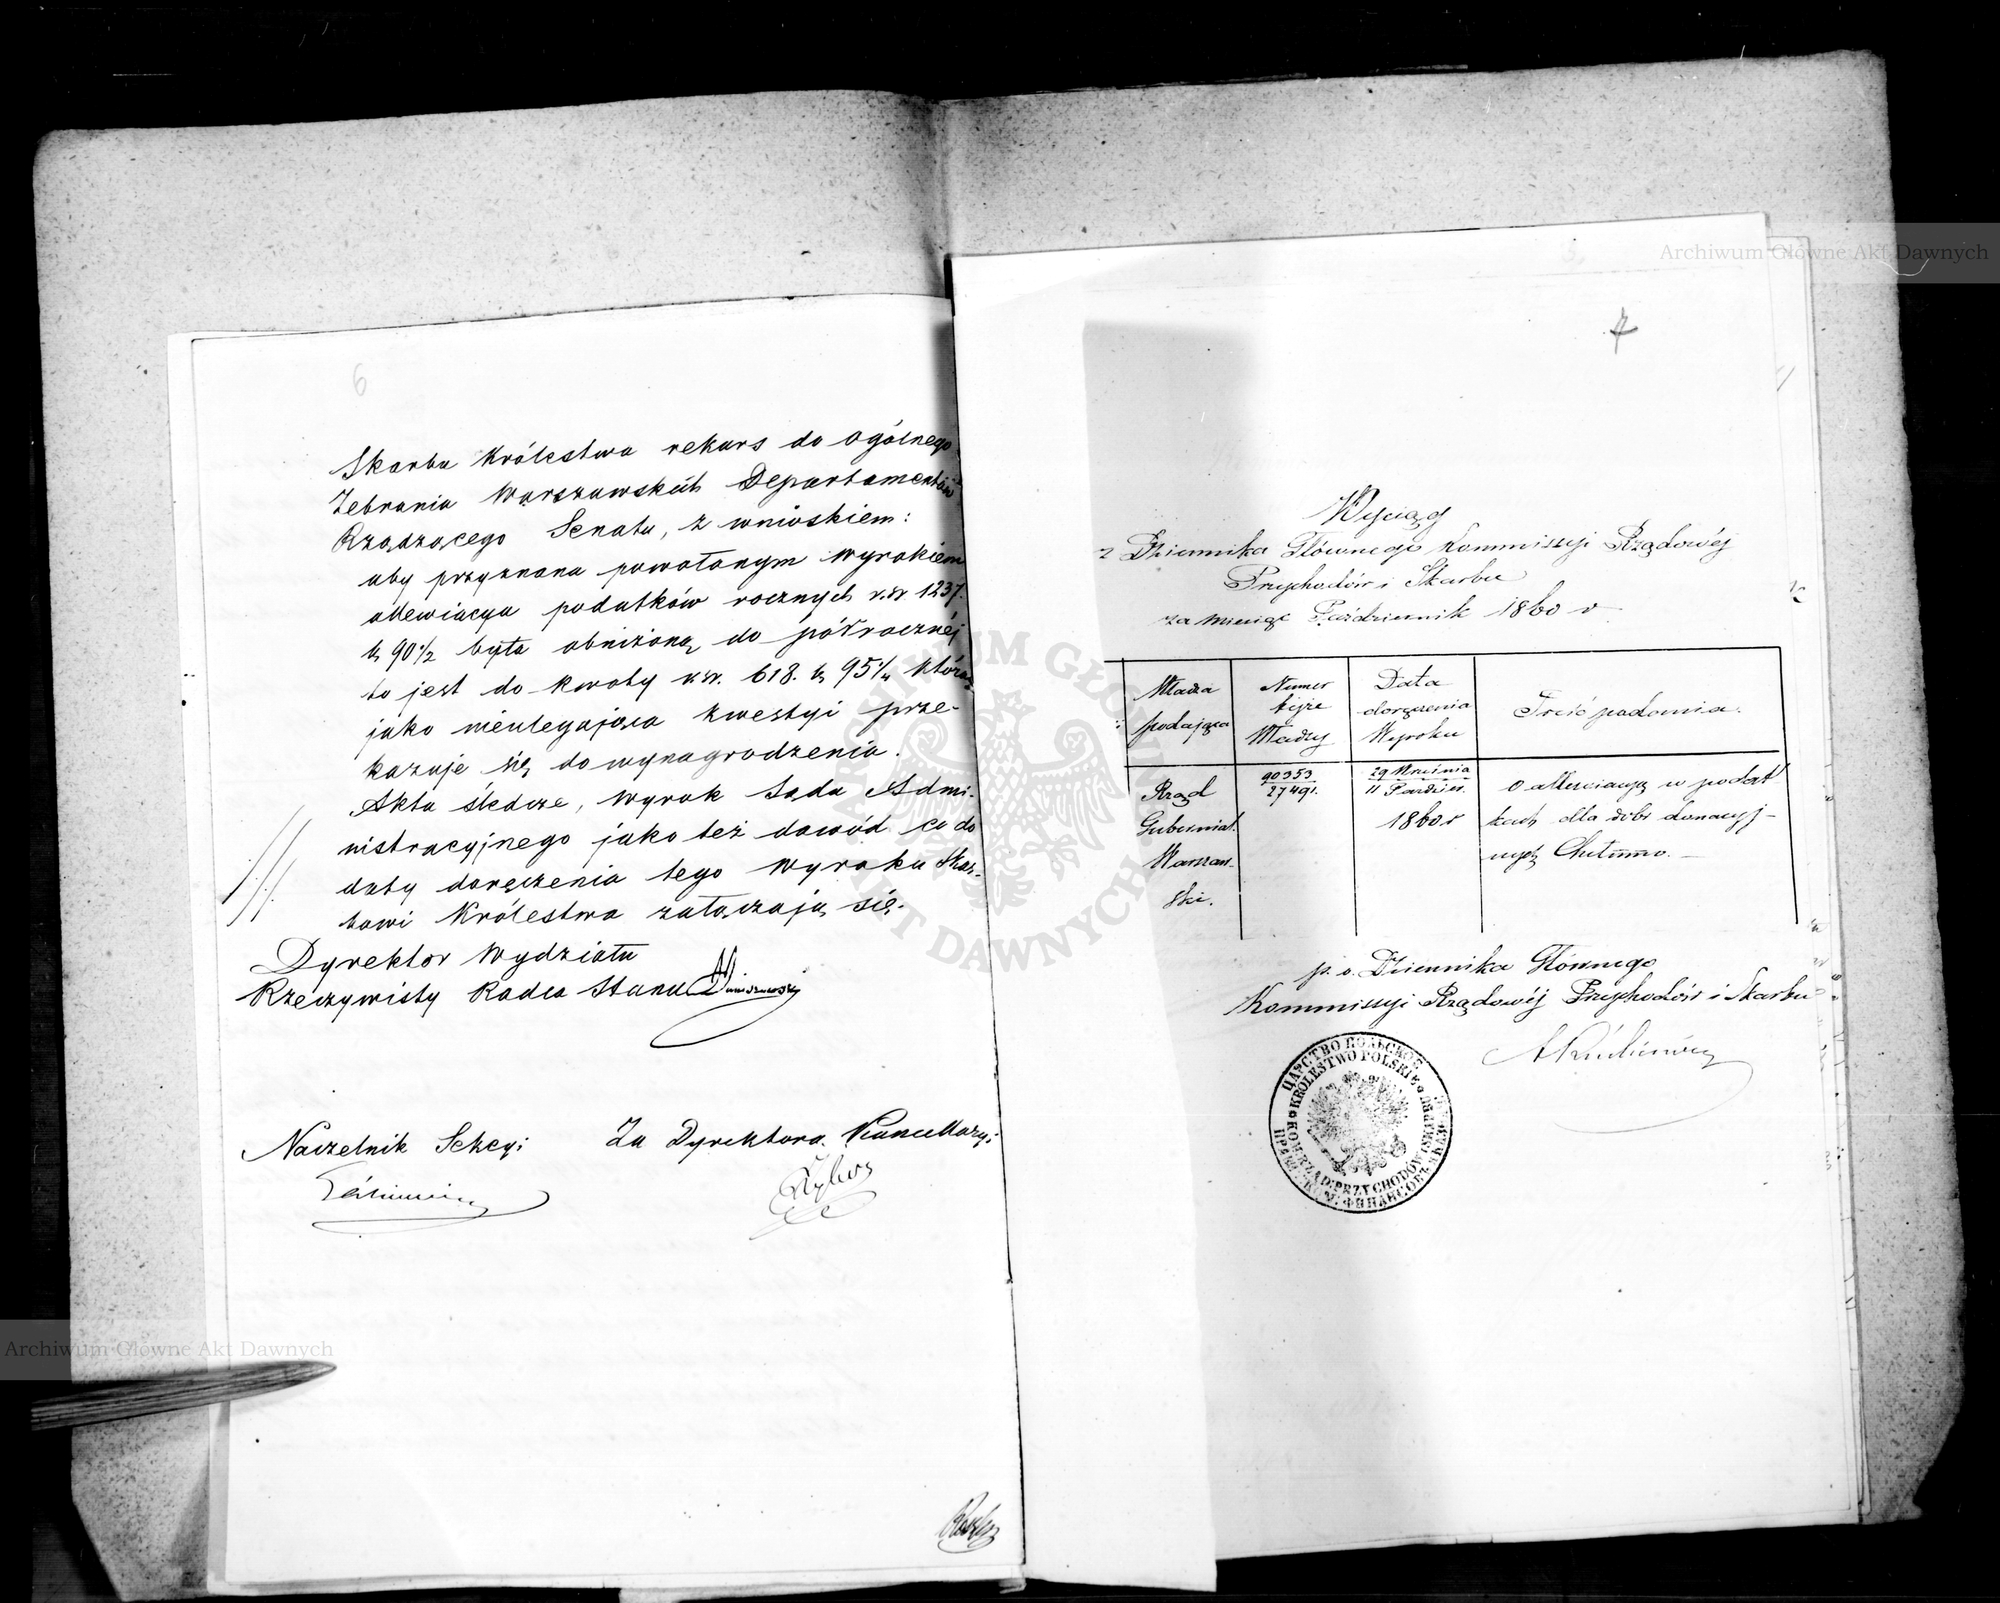 6
Skarbu Królestwa rekurs do ogólnego
Zebrania Warszawskich Departamentów
Rządzącego Senatu, z wnioskiem:
aby przyznana powołanym wyrokiem
allewiacya podatków rocznych r.sr 1237.
k 90 1/2 była obniżoną do półrocznéj
to jest do kwoty r.sr. 618. k 95 1/4 która
jako nieulegająca kwestyi prze-
kazuje się do wynagrodzenia.
Akta śledcze, wyrok Sądu Admi-
nistracyjnego jako też dowód co do
daty doręczenia tego wyroku Skar-
bowi Królestwa załączają się.
Dyrektor Wydziału
Rzeczywisty Radca Stanu
Naczelnik Sekcyi
Za Dyrektora Kancellaryi
7
Wyciąg
z Dziennika Głównego Kommissyi Rządowéj
Przychodów i Skarbu
za miesiąc Październik 1860 r
Władza podająca
Numer tejże Władzy
Data doręczenia Wyroku
Treść podania.
Rząd Gubernial. Warszaw- ski.
90353
27491.
29 Września
11 Paździer.
1860 r
o allewiacyą w podat
kach dla dóbr donacyj-
nych Chełmno. —
p. o. Dziennika Głównego
Kommissyi Rządowéj Przychodów i Skarbu
ЦАРСТВО ПОЛЬСКОЕ
KRÓLESTWO POLSKIE
KOM: RZĄD: PRZYCHODÓW I SKARBU
Archiwum Główne Akt Dawnych
Archiwum Główne Akt Dawnych
ARCHIWUM GŁÓWNE AKT DAWNYCH